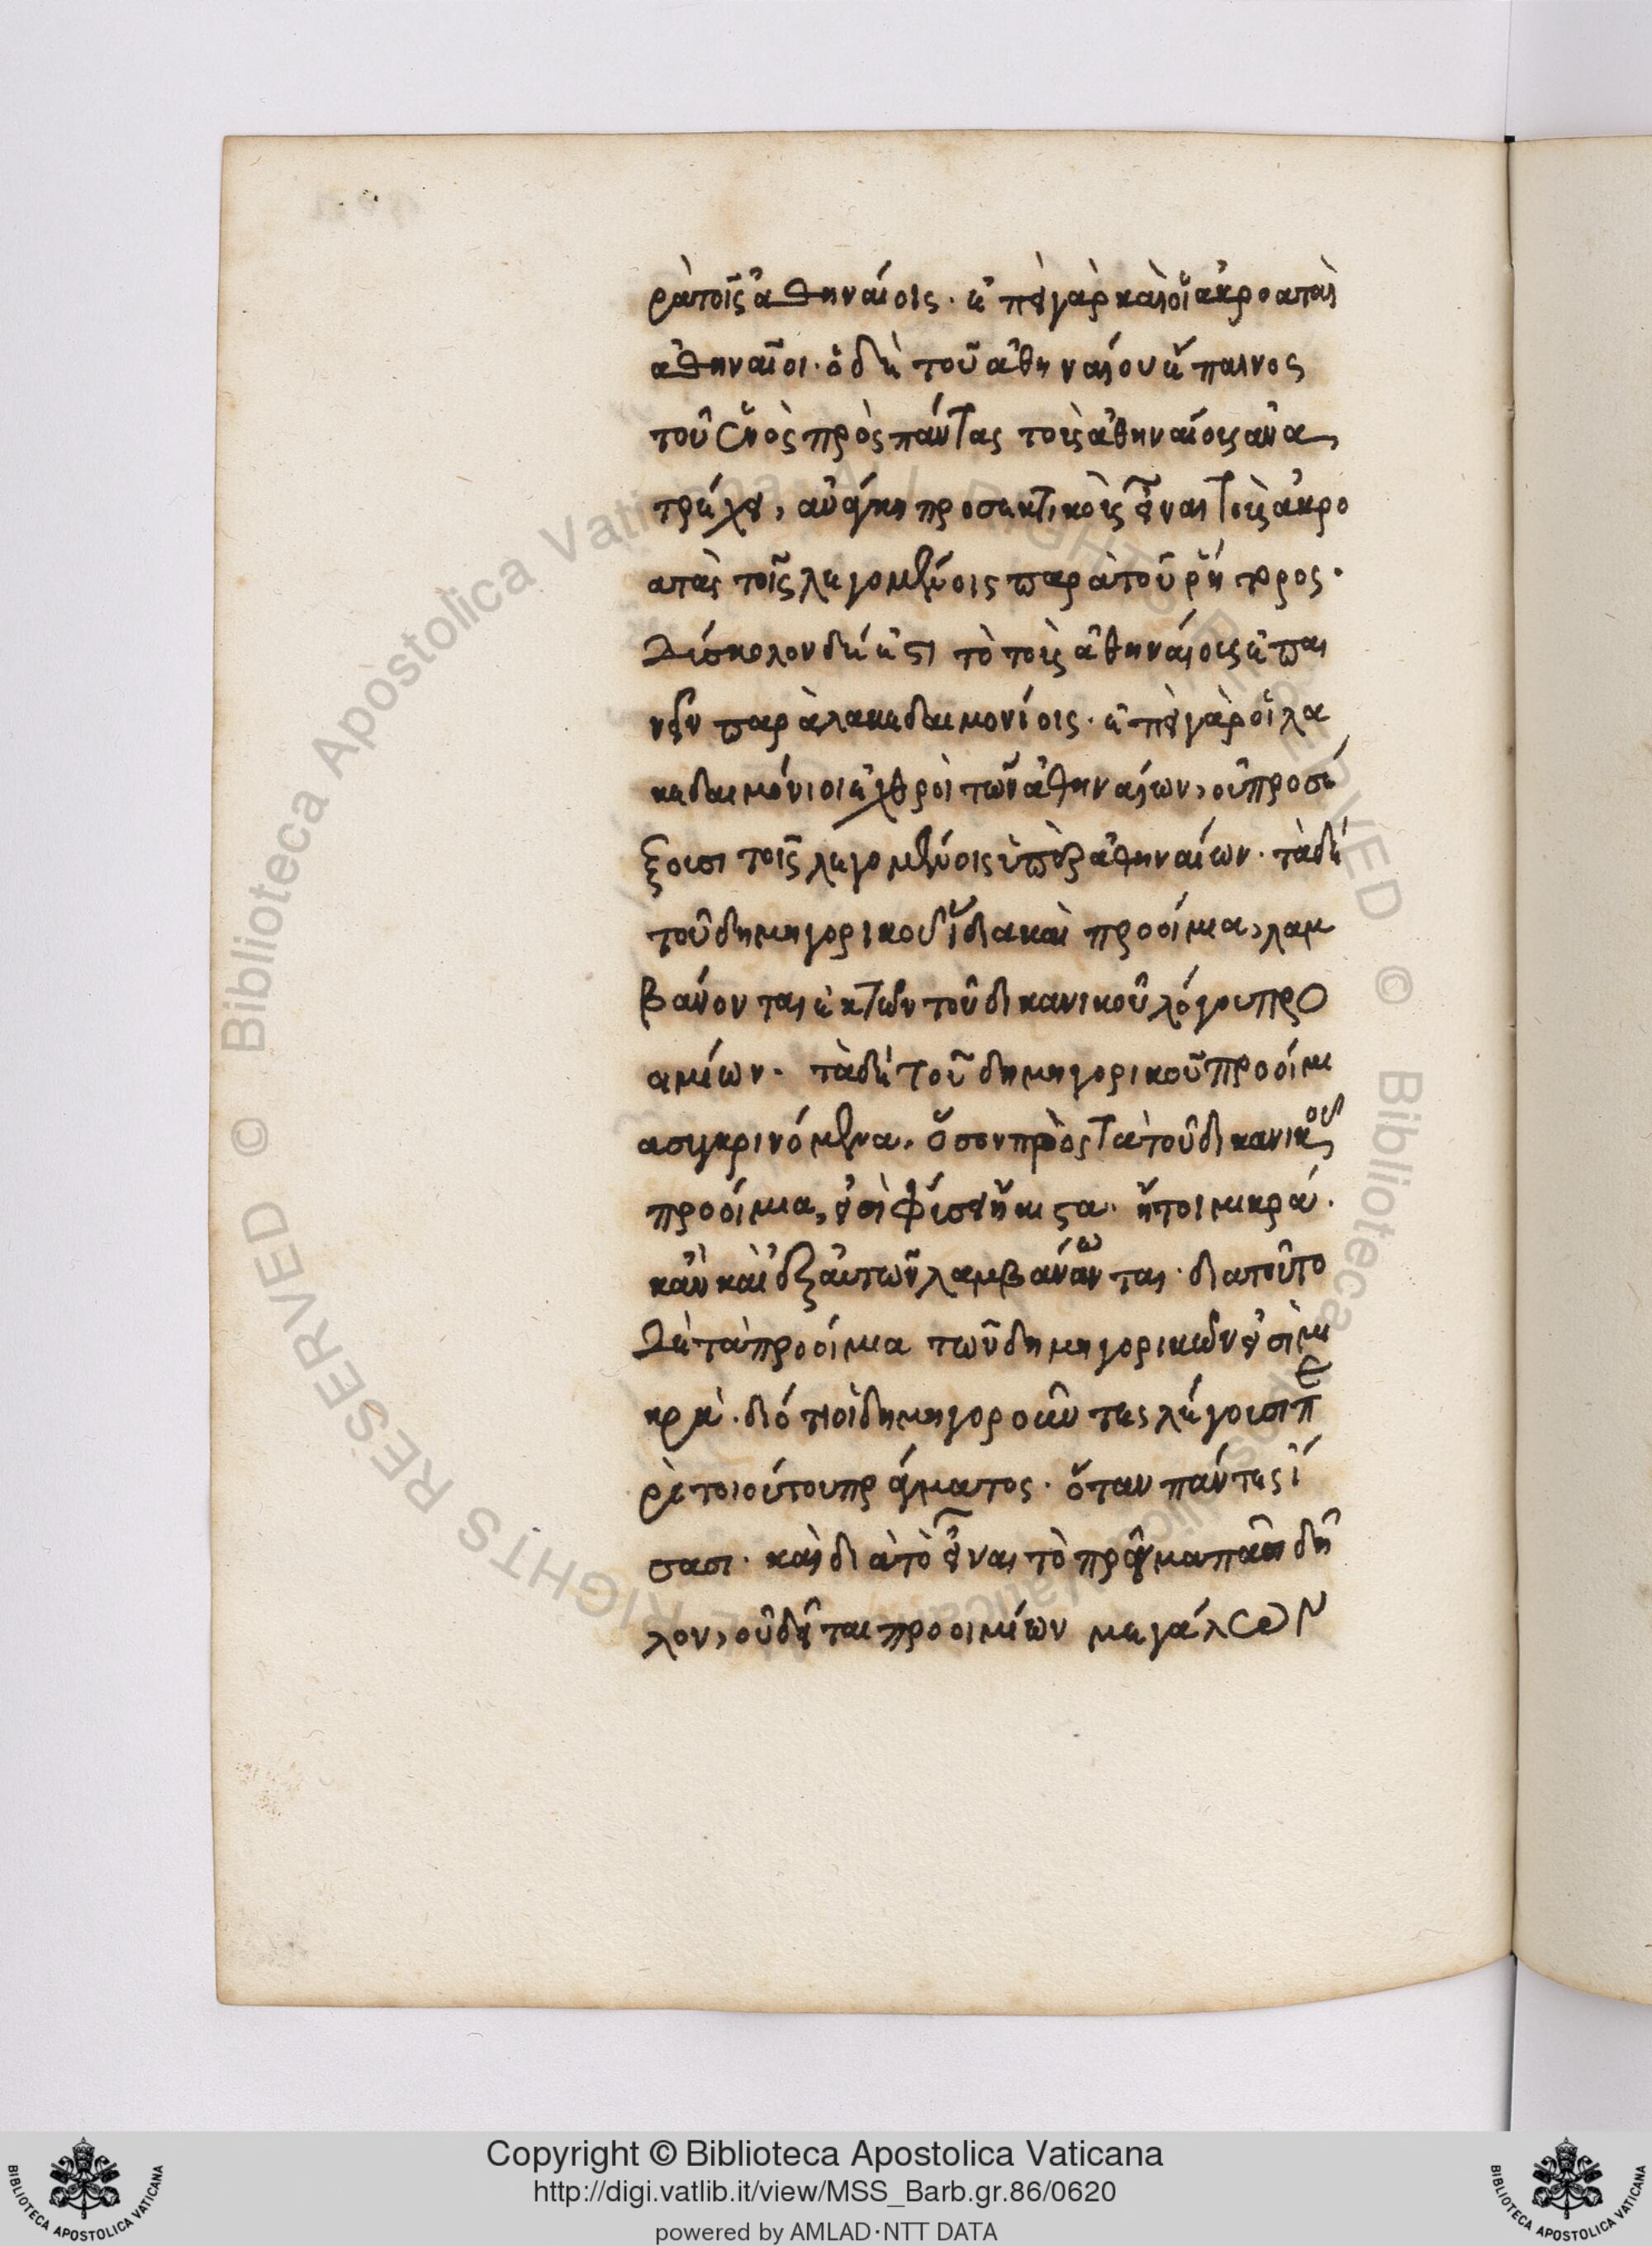 ρὰ τοῖς ἀθηναίοις· ἐπεὶ γὰρ καὶ οἱ ἀκροαταὶ
ἀθηναῖοι· ὁ δὲ τοῦ ἀθηναίου ἔπαινος
τοῦ ἑνὸς πρὸς πάντας τοὺς ἀθηναίους ἀνα
τρέχει, ἀνάγκη προσεκτικοὺς εἶναι τοὺς ἀκρο
ατὰς τοῖς λεγομένοις παρὰ τοῦ ῥήτορος·
Δύσκολον δέ ἐστι τὸ τοὺς ἀθηναίους ἐπαι
νεῖν παρὰ λακεδαιμονίοις· ἐπεὶ γὰρ οἱ λα
κεδαιμόνιοι ἐχθροὶ τῶν ἀθηναίων, οὐ προσέ
ξουσι τοῖς λεγομένοις ὑπὲρ ἀθηναίων· τὰ δὲ
τοῦ δημηγορικοῦ ἴδια καὶ προοίμια, λαμ
βάνονται ἐκ τῶν τοῦ δικανικοῦ λόγου προ
οιμίων· τὰ δὲ τοῦ δημηγορικοῦ προοίμι
α συγκρινόμενα, ὅσον πρὸς τὰ τοῦ δικανικοῦ
προοίμια, εἰσὶ φύσει ἥκιστα· ἤτοι μικρά·
κἂν καὶ ἐξ αὐτῶν λαμβάνωνται· διὰ τοῦτο
Δὲ τὰ προοίμια τῶν δημηγορικῶν εἰσὶ μι
κρά· διότι οἱ δημηγοροῦντες λέγουσι πε
ρὶ τοιούτου πράγματος· ὅταν πάντες ἴ
σασι· καὶ διὰ τὸ εἶναι τὸ πρᾶγμα πᾶσι δῆ
λον, οὐ δεῖται προοιμίων μεγάλων
Copyright © Biblioteca Apostolica Vaticana
http://digi.vatlib.it/view/MSS_Barb.gr.86/0620
powered by AMLAD·NTT DATA
BIBLIOTECA APOSTOLICA VATICANA
BIBLIOTECA APOSTOLICA VATICANA